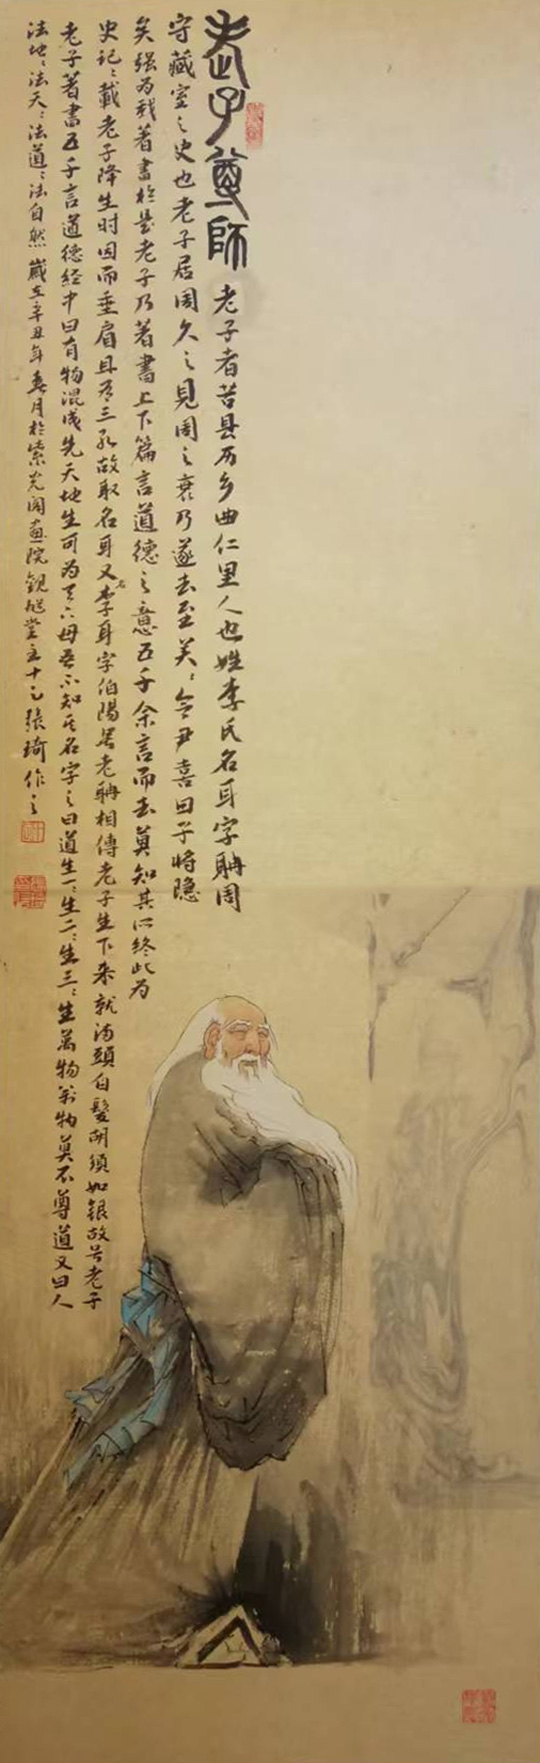 老子尊師
老子者苦县历乡曲仁里人也姓李氏名耳字聃周
守藏室之史也老子居周久之見周之衰乃遂去至关〻令尹喜曰子将隐
矣强为我著書於是老子乃著書上下篇言道德之意五千余言而去莫知其所终此为
史记〻載老子降生时因而垂肩且有三孔故取名耳又名李耳字伯陽号老聃相傳老子生下来就满頭白髮胡须如银故号老子
老子著書五千言道德经中曰有物混成先天地生可为天下母吾不知其名字之曰道生一〻生二〻生三〻生萬物万物莫不尊道又曰人
法地〻法天〻法道〻法自然 歲在辛丑年春月於紫光阁画院觀旭堂主十之張琦作之